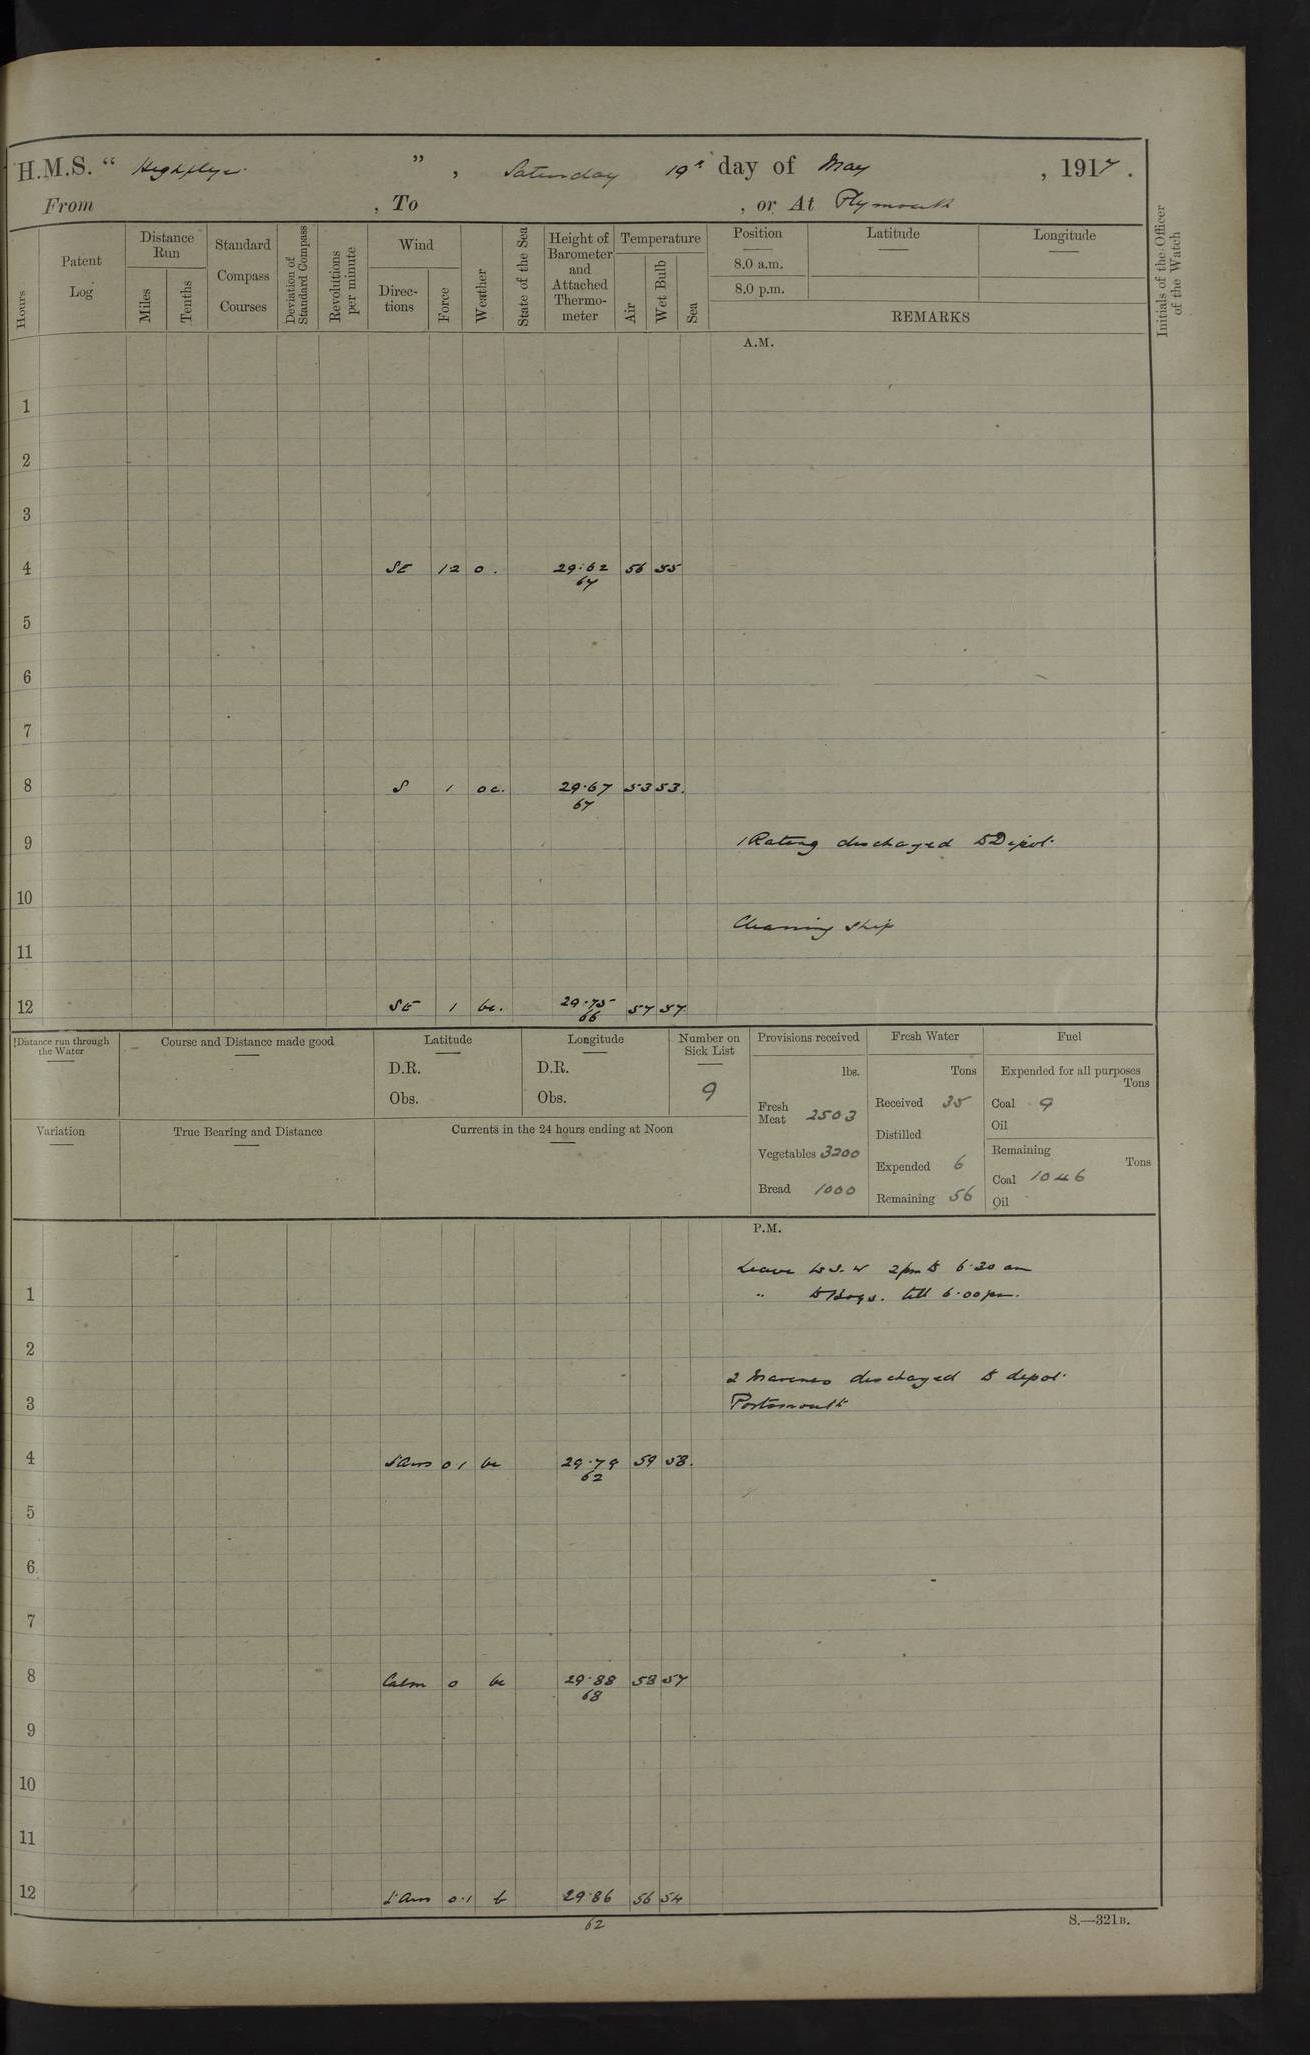 H.M.S. “ Highflyer ” , Saturday 19th day of May , 1917 .
From , To , or At Plymouth
Hours
Patent Log
Distance Run
Miles
Tenths
Standard Compass Courses
Deviation of Standard Compass
Revolutions per minute
Wind
Direc- tions
Force
Weather
State of the Sea
Height of Barometer and Attached Thermo- meter
Temperature
Air
Wet Bulb
Sea
Position
8.0 a.m.
8.0 p.m.
Latitude
Longitude
REMARKS
Initials of the Officer of the Watch
A.M.
1
2
3
4 SE 12 o. 29.62 56 55
64
5
6
7
8 S 1 oc. 29.67 53 53.
67
9 1 Rating discharged to Depot.
10
Cleaning ship
11
12 SE 1 bc. 29.75 57 57
66
Distance run through the Water
Course and Distance made good
Latitude
D.R.
Obs.
Longitude
D.R.
Obs.
Number on Sick List
9
Provisions received
lbs.
Fresh Meat 2503
Vegetables 3200
Bread 1000
Fresh Water
Tons
Received 35
Distilled
Expended 6
Remaining 56
Fuel
Expended for all purposes
Tons
Coal 9
Oil
Remaining
Tons
Coal 1046
Oil
Variation
True Bearing and Distance
Currents in the 24 hours ending at Noon
P.M.
Leave to S.W 2pm to 6.30 am
1 " to Boys. till 6.00 pm.
2
2 Marines discharged to depot.
3 Portsmouth
4 S'Airs 01 bc 29.79 59 58.
62
5
6
7
8 Calm 0 bc 29.88 58 57
68
9
10
11
12 L'Airs 0.1 b 29.86 56 54
62
S.—321B.